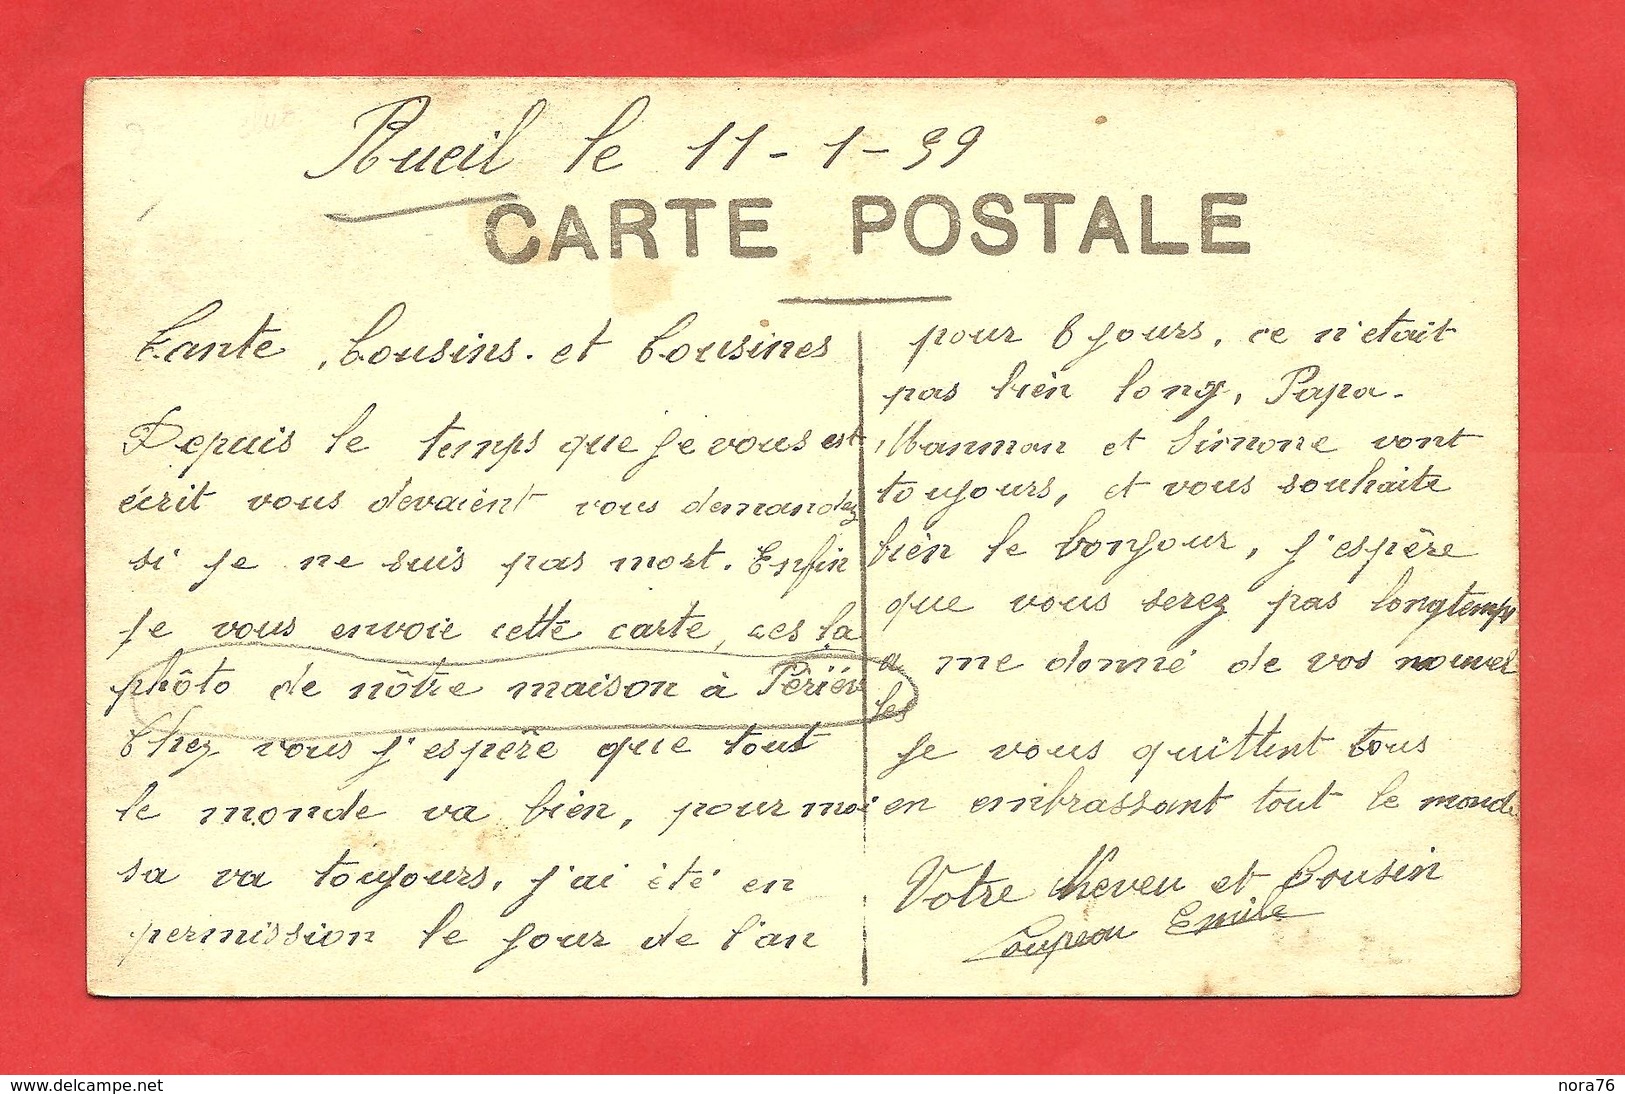 Rueil le 11-1-39
CARTE POSTALE
Tante, Cousins. et Cousines
Depuis le temps que je vous est
écrit vous devaient vous demandez
si je ne suis pas mort. Enfin
je vous envoie cette carte, ces la
phôto de nôtre maison à
Chez vous j'espère que tout
le monde va bien, pour moi
sa va toujours, j'ai été en
permission le jour de l'an
pour 6 jours, ce n'etait
pas bien long, Papa.
Manman et Simone vont
toujours, et vous souhaite
bien le bonjour, j'espère
que vous serez pas longtemps
a me donné de vos nouvel
les
Je vous quittent tous
en embrassant tout le monde
Votre Neveu et Cousin
Coupeau Emile
www.delcampe.net
nora76